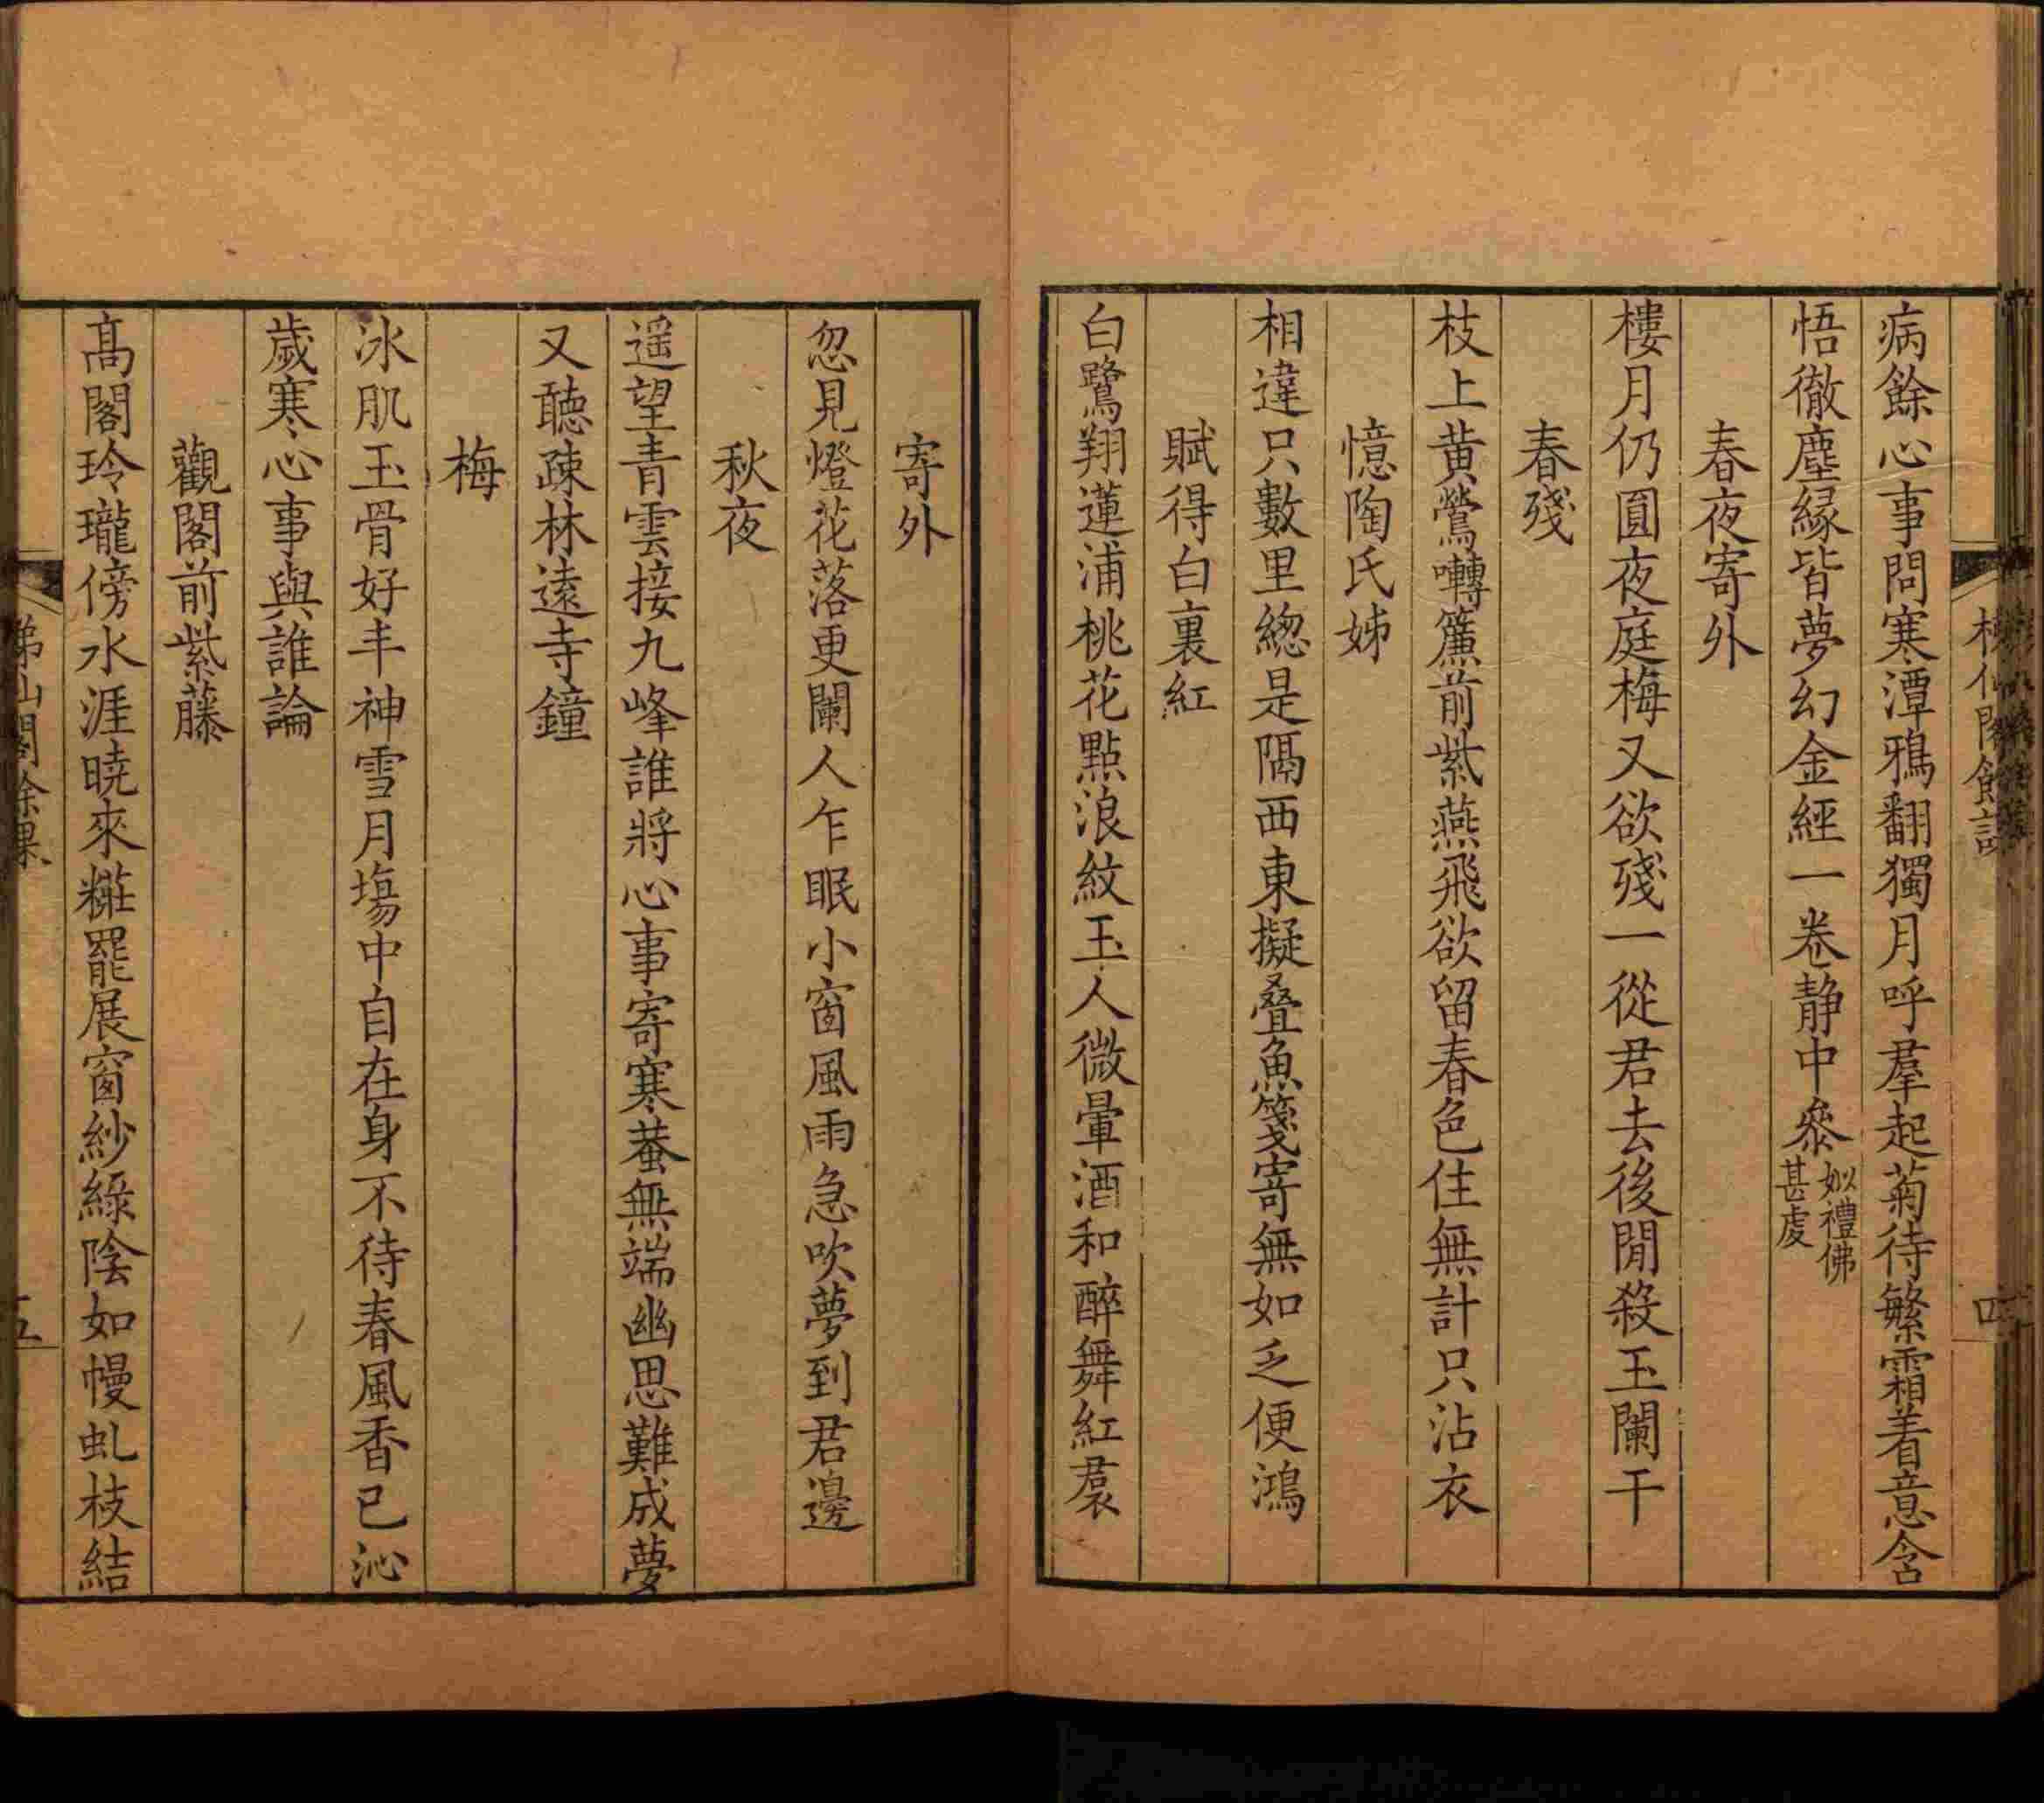 病餘心事問寒潭鴉翻獨月呼羣起菊待繁霜着意含
悟徹塵緣皆夢幻金經一卷静中叅姒禮佛甚虔
春夜寄外
樓月仍圓夜庭梅又欲殘一從君去後閒殺玉闌干
春殘
枝上黄鶯囀簾前紫燕飛欲留春色住無計只沾衣
憶陶氏姊
相違只數里緫是隔西東擬叠魚箋寄無如乏便鴻
賦得白裏紅
白鷺翔蓮浦桃花點浪紋玉人微暈酒和醉舞紅裠
寄外
忽見燈花落更闌人乍眠小窗風雨急吹夢到君邊
秋夜
遥望青雲接九峰誰將心事寄寒蛬無端幽思難成夢
又聽疎林遠寺鐘
梅
冰肌玉骨好丰神雪月塲中自在身不待春風香已沁
歲寒心事與誰論
觀閣前紫藤
高閣玲瓏傍水涯曉來糚罷展窗紗綠陰如幔虬枝結
五